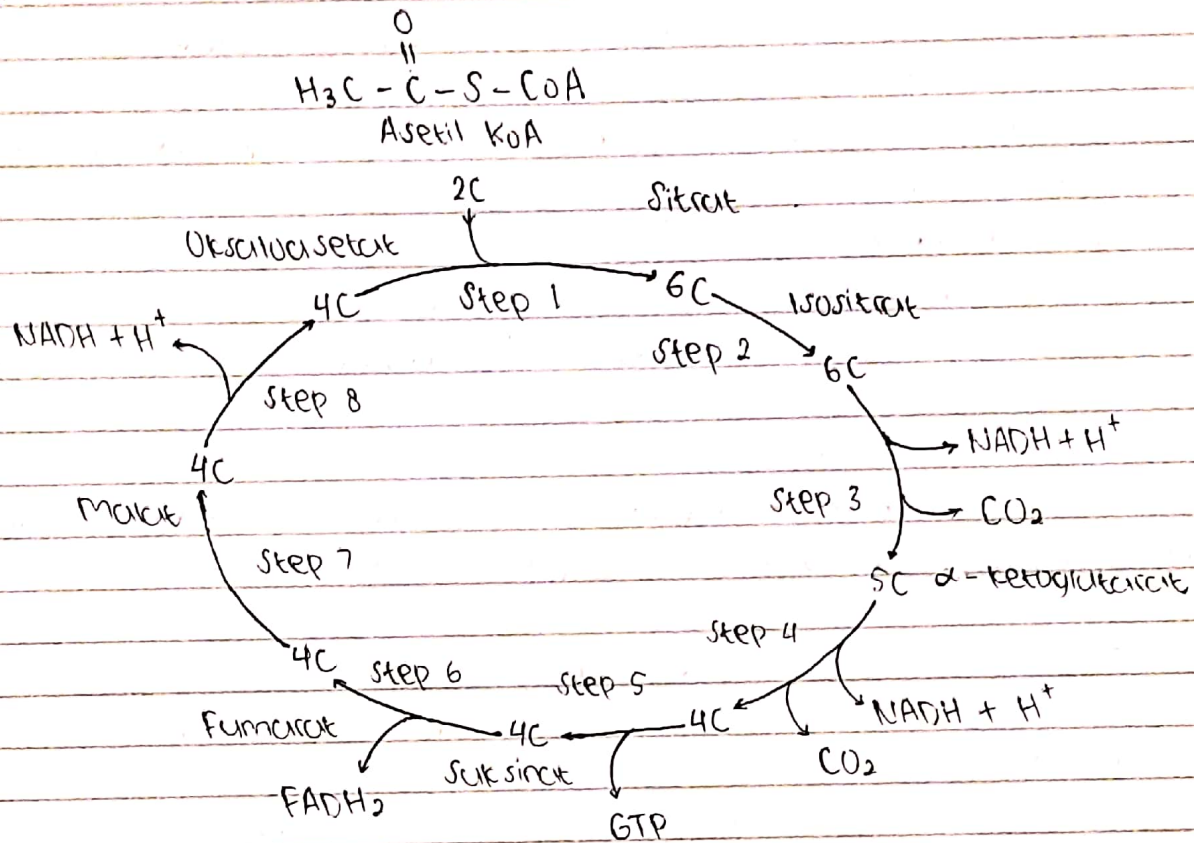 O
||
H₃C - C - S - CoA
Asetil KoA
2C
Sitrat
Oksaloasetat
4C
Step 1
6C
Isositrat
NADH + H⁺
Step 2
6C
Step 8
NADH + H⁺
4C
Malat
Step 3
CO₂
Step 7
5C α-ketoglutarat
Step 4
4C
Step 6
Step 5
4C
NADH + H⁺
Fumarat
4C
CO₂
Suksinat
FADH₂
GTP